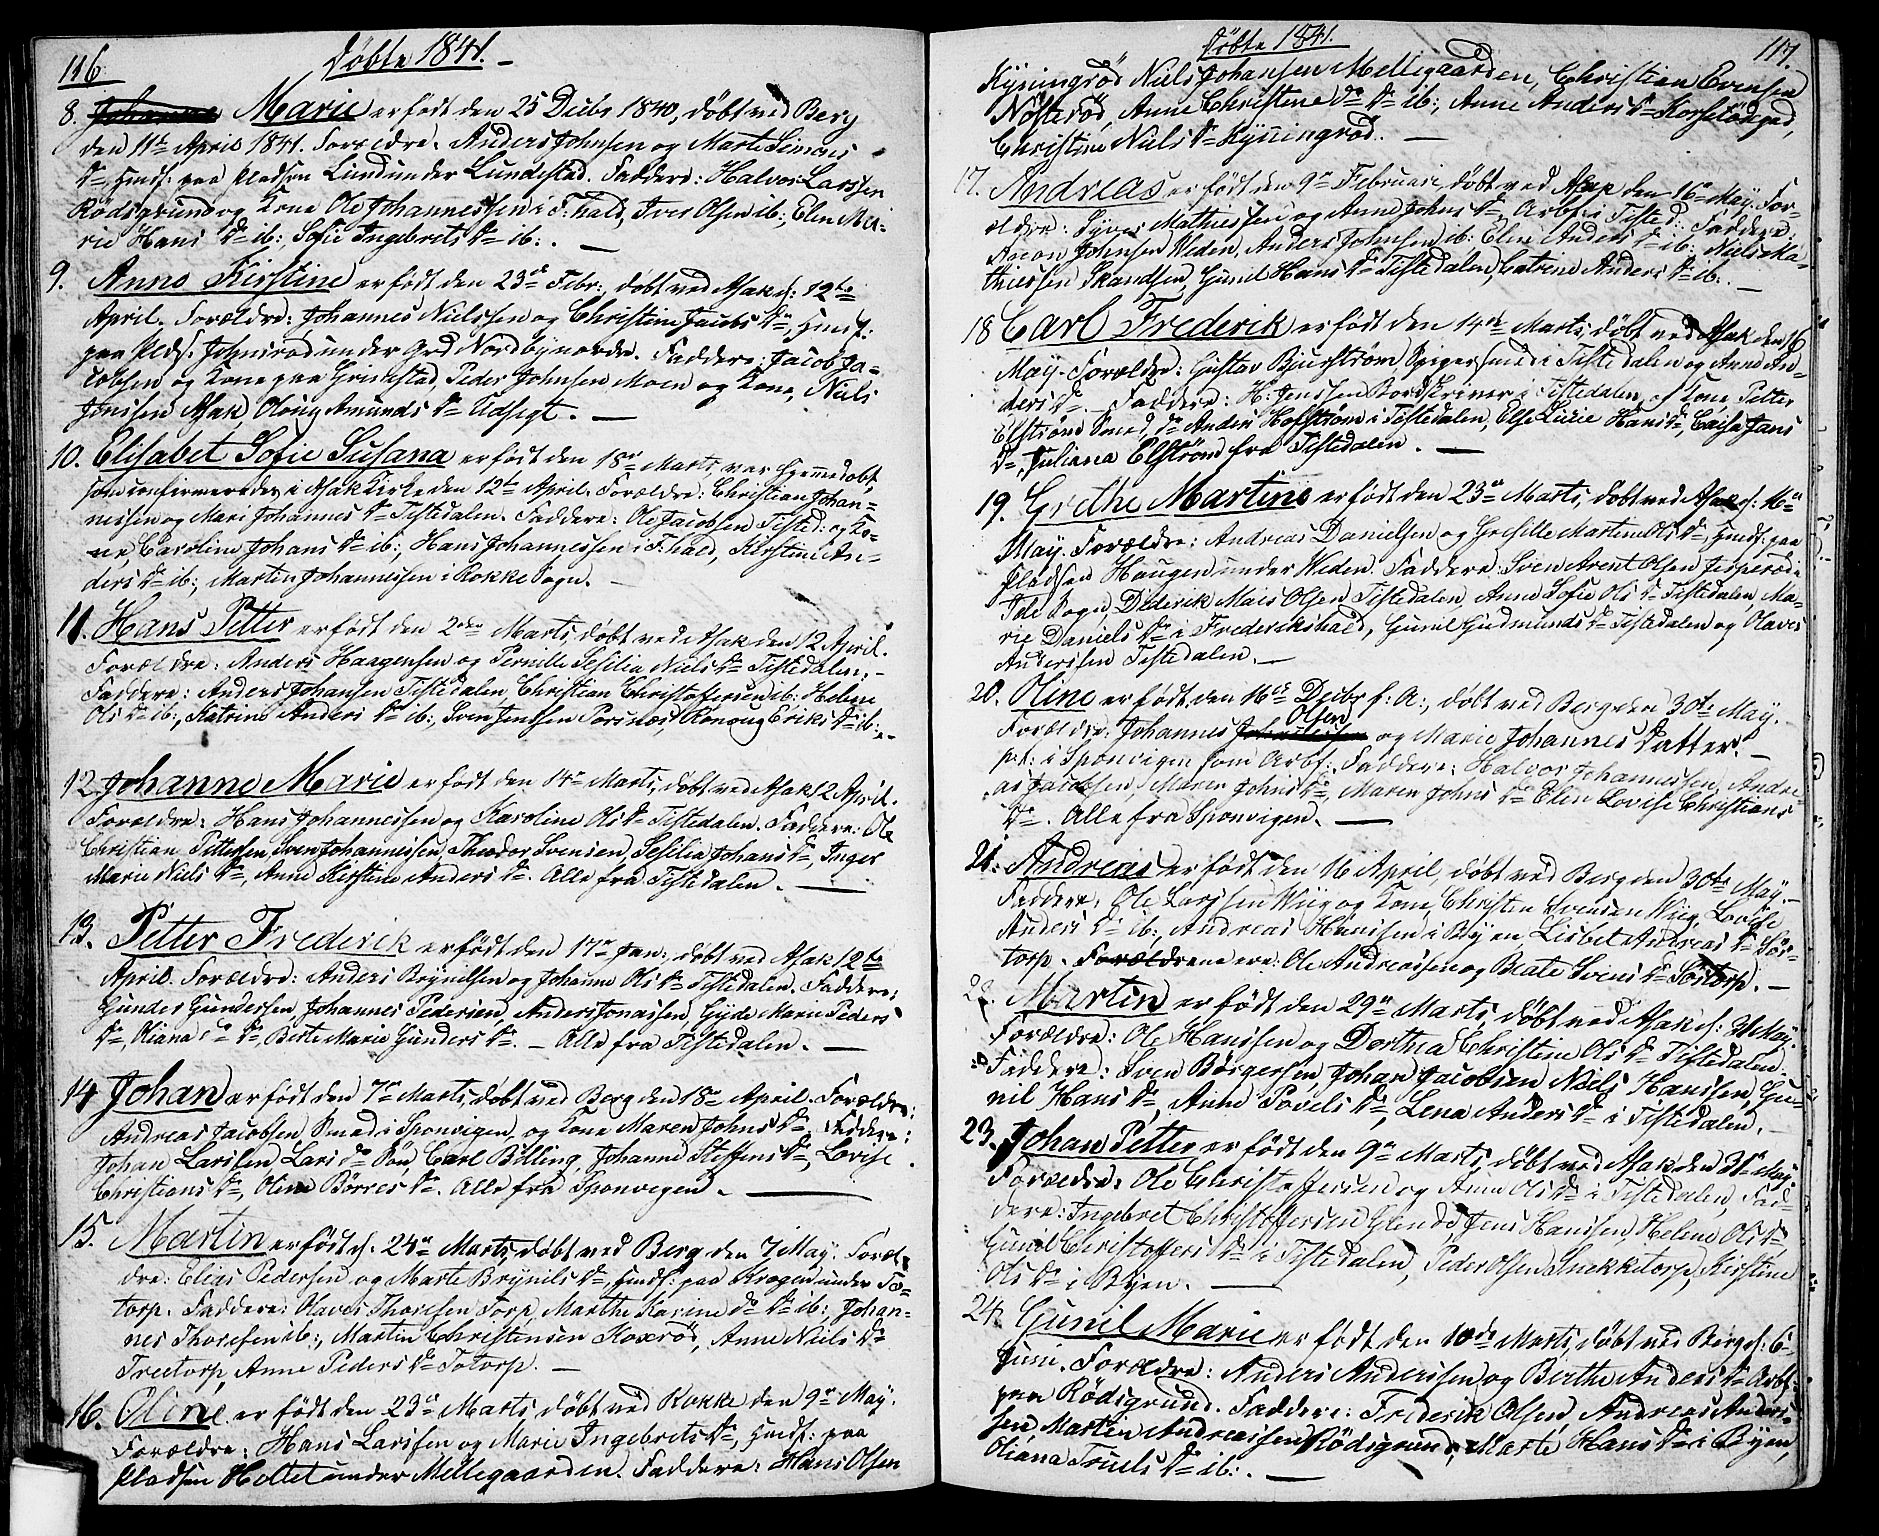 116
Døbte 1841.
8. Johanne Marie er født den 25 Decbr 1840, døbt ved Berg
den 11te April 1841. Forældre: Anders Johnsen og Marte Simons
Dr, Huusf: paa Pladsen Lund under Lundestad. Faddere: Halvor Larssen
Rødsgrund og Kone Ole Johannessen i F:hald, Iver Olsen ib:, Elen Ma-
rie Hans Dr ib:, Sofie Ingebrets Dr ib:. —
9. Anne Kirstine er født den 23de Febr., døbt ved Asak d: 12te
April. Forældre: Johannes Nielssen og Christine Jacobs Dr, Huusf:
paa Plds: Johnsrød under Grd Nordbynordre. Faddere: Jacob Ja-
cobsen og Kone paa Grimstad, Peder Johnsen Moen og Kone, Niels
Jenssen Asak, Oloug Amunds Dr Udsigt. —
10. Elisabet Sofie Susana er født den 18de Marts, var hjemmedøbt,
som confirmeredes i Asak Kirke den 12te April. Forældre: Christian Johan-
nessen og Mari Johannes Dr Tistedalen. Faddere: Ole Jacobsen Tisted: og Ko-
ne, Caroline Johans Dr ib:, Hans Johannessen i F:hald, Kirstine An-
ders Dr ib:, Martin Johannessen i Rokke Sogn. —
11. Hans Petter er født den 2den Marts, døbt ved Asak den 12 April.
Forældre: Anders Haagensen og Pernille Sesilia Niels Dr Tistedalen. —
Faddere: Anders Johansen Tistedalen, Christian Christofersen ib: Helene
Ols Dr ib:, Katrine Anders Dr ib:, Sven Jensen Porsnæs, Rønnoug Eriks Dr ib:. —
12. Johanne Marie er født den 14de Marts, døbt ved Asak 12 April.
Forældre: Hans Johannessen og Karoline Ols Dr Tistedalen. Faddere: Ole
Christian Pettersen, Sven Johannessen, Theodor Svensen, Sesilia Johans Dr, Inger
Marie Niels Dr, Anne Kirstine Anders Dr. Alle fra Tistedalen. —
13. Petter Frederik er født den 17de Jan: døbt ved Asak 12te
April. Forældre: Anders Brynilsen og Johanne Ols Dr Tistedalen. Faddere:
Gunder Gundersen, Johannes Pedersen, Anders Jonassen, Gyde Marie Peders
Dr, Oliana do Dr, Berte Marie Gunders Dr. — Alle fra Tistedalen. —
14. Johan er født den 7de Marts, døbt ved Berg den 18de April. Forældre:
Andreas Jacobsen Smed i Sponvigen, og Kone Maren Johns Dr. Faddere:
Johan Larssen, Lars do Søn, Carl Billing, Johanne Steffens Dr, Lovise
Christians Dr, Oline Børres Dr. Alle fra Sponvegen. —
15. Martin er født d. 24de Marts, døbt ved Berg den 7 May. Foræl-
dre: Elias Pedersen og Marte Brynils Dr, Huusf: paa Kragen under To-
torp. Faddere: Olaves Thoresen Torp, Marthe Karine do Dr ib: Johan-
nes Thoresen ib:, Martin Christensen Koxrød, Anne Niels Dr
Treetorp, Anne Peders Dr Totorp. —
16. Oline er født den 23de Marts, døbt ved Rokke den 9de May.
Forældre: Hans Larssen og Marie Ingebrets Dr, Huusf: paa
Pladsen Holtet under Mellegaarden. Faddere: Hans Olsen
Døbte 1841.
117.
Kynningrød, Niels Johansen Mellegaarden, Christian Evensen
Nøsterød, Anne Christine do Dr ib:, Anne Anders Dr
Christine Niels Dr Kynningrød. —
17. Andreas er født den 9de Februari, døbt ved Asak den 16de May. For-
ældre: Syver Mathiessen og Anne Johns Dr, Arbf: i Tisted: Faddere:
Aaron Johnsen Weden, Anders Johnsen ib: Eline Anders Dr ib: Niels Ma-
thiessen Skandsen, Gunil Hans Dr Tistedalen, Catrine Anders Dr ib:. —
18. Carl Frederik er født den 14de Marts, døbt ved Asak den 16
May. Forældre: Gustav Bjurstrøm Spigersmed i Tistedalen og Anne An-
ders Dr. Faddere: H: Jenssen Bordskriver i Tistedalen og Kone, Petter
Elstrøm Smed, Sr Anders Holstrøm i Tistedalen, Else Lucie Hans Dr, Caisa Jans
Dr, Juliana Elstrøm fra Tistedalen. —
19. Grethe Martine er født den 23de Marts, døbt ved Asak d: 16de
May. Forældre: Andreas Danielsen og Gresille Martine Ols Dr, Huusf: paa
Pladsen Haugen under Weden. Faddere: Sven Arent Olsen Jesperød i
Ide Sogn, Diderik Mais Olsen Tistedalen, Anne Sofie Ols Dr Tistedalen, Ma-
rie Daniels Dr i Frederikshald, Gunil Gudmunds Dr Tistedalen og Olaves
Anderssen Tistedalen. —
20. Oline er født den 16de Decbr f: A:, døbt ved Berg den 30te May.
Forældre: Johannes Olsen og Marie Johannes Datter. —
p:t: i Sponvigen som Arbf:. Faddere: Halvor Johannessen, Andre-
as Jacobsen, Maren Johns Dr, Maren Johns Dr Elen Lovise Christians
Dr. Alle fra Sponvigen. —
21. Andreas er født den 16 April, døbt ved Berg den 30te May. —
Faddere: Ole Larssen Wiig og Kone, Christen Svensen Wiig, Lovise
Anders Dr ib:, Andreas Hanssen i Byen, Lisbet Andreas Dr Sør-
torp. Forældrene ere: Ole Andreassen og Beate Svens Dr Sørtorp. —
22. Martin er født den 29de Marts, døbt ved Asak d: 31 May.
Forældre: Ole Hanssen og Dorthea Christine Ols Dr Tistedalen.
Faddere: Sven Børgersen, Johan Jacobsen, Niels Hanssen, Gu-
nil Hans Dr, Anne Povels Dr, Lena Anders Dr i Tistedalen.
23. Johan Petter er født den 9de Marts, døbt ved Asak den 31te May.
Forældre: Ole Christoffersen og Anne Ols Dr i Tistedalen, Fad-
dere: Ingebret Christoffersen Glende, Jens Hanssen, Helene Ols Dr,
Gunil Christoffers Dr i Tistedalen, Peder Olsen Snekkitorp, Kirstine
Ols Dr i Byen. —
24. Gunil Marie er født den 10de Marts, døbt ved Berg d: 6te
Juni. Forældre: Anders Anderssen og Berthe Anders Dr Arbf:
paa Rødsgrund. Faddere: Frederik Olsen, Andreas Anders-
sen, Martin Andreassen Rødsgrund, Marte Hans Dr i Byen,
Oliana Truels Dr ib:. —